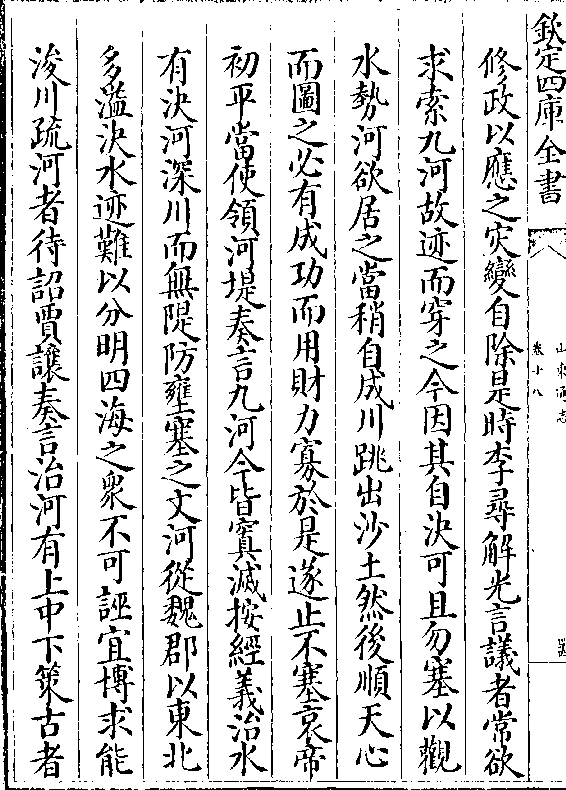 欽定四庫全書
山東通志
卷十八
修政以應之灾變自除是時李尋解光言議者常欲
求索九河故迹而穿之今因其自決可且勿塞以觀
水勢河欲居之當稍自成川跳出沙土然後順天心
而圖之必有成功而用財力寡於是遂止不塞哀帝
初平當使領河堤奏言九河今皆窴滅按經義治水
有決河深川而無隄防壅塞之文河從魏郡以東北
多溢決水迹難以分明四海之衆不可誣宜博求能
浚川疏河者待詔賈讓奏言治河有上中下策古者